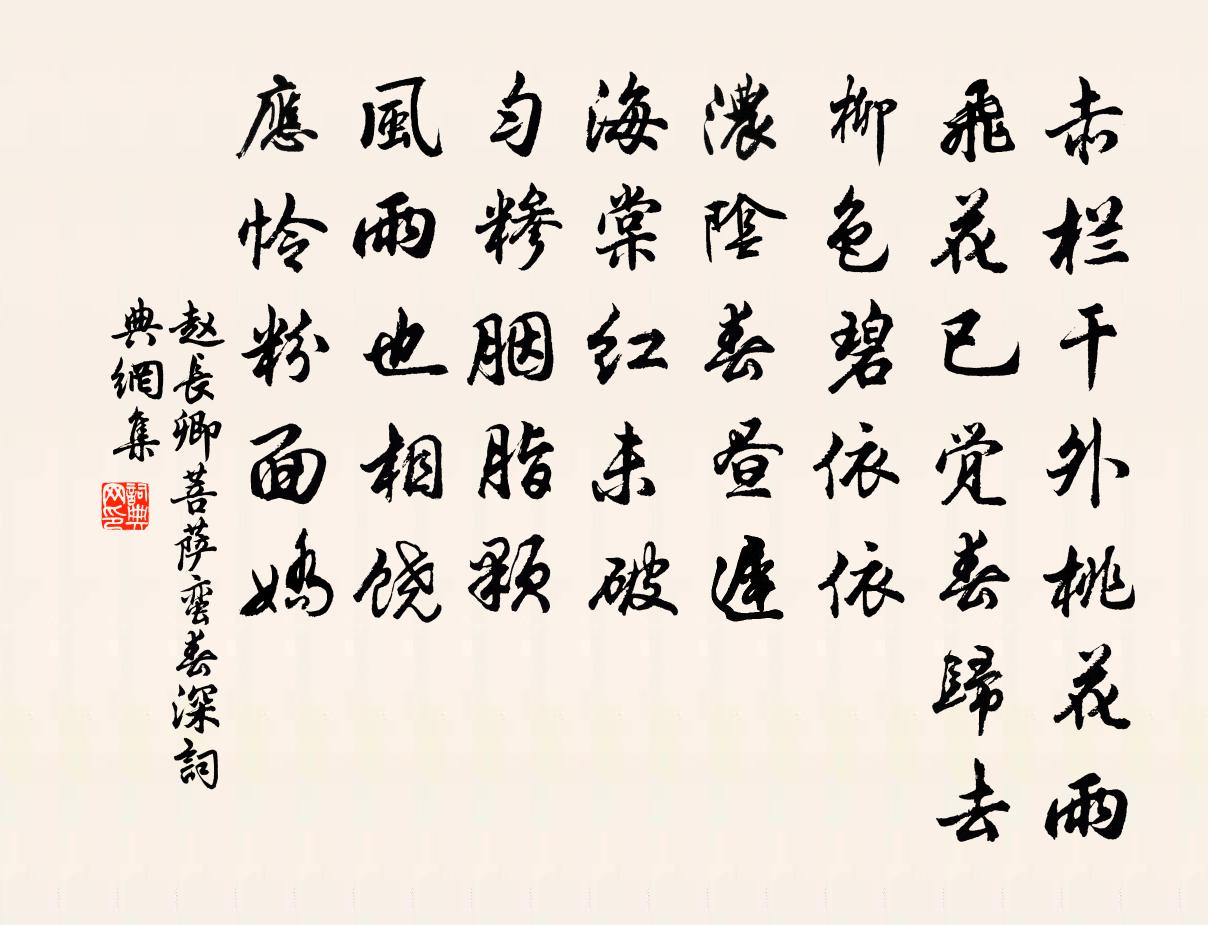 赤栏干外桃花雨
飛花已觉春歸去
柳色碧依依
濃陰春昼遲
海棠红未破
匀糁胭脂颗
風雨也相饶
應怜粉面嬌
赵長卿菩萨蛮春深詞
典網集
詞典网印